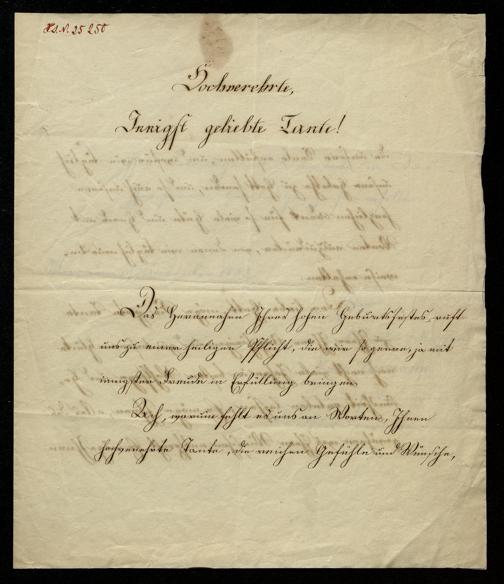 H.I.N. 25250
Hochverehrte,
Innigst geliebte Tante!
Das Herannahen Ihres hohen Geburtsfestes, ruft
uns zu einer heiligen Pflicht, die wir so gerne, ja mit
innigster Freude in Erfüllung bringen.
Ach, warum fehlt es uns an Worten, Ihnen
hochverehrte Tante, die reichen Gefühle und Wünsche,